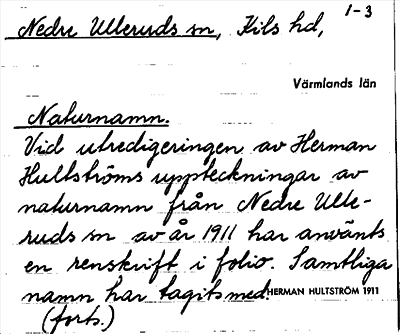 1-3
Nedre Ulleruds sn, Kils hd,
Värmlands län
Naturnamn.
Vid utredigeringen av Herman
Hultströms uppteckningar av
naturnamn från Nedre Ulle-
ruds sn av år 1911 har använts
en renskrift i folio. Samtliga
namn har tagits med. HERMAN HULTSTRÖM 1911
(forts.)